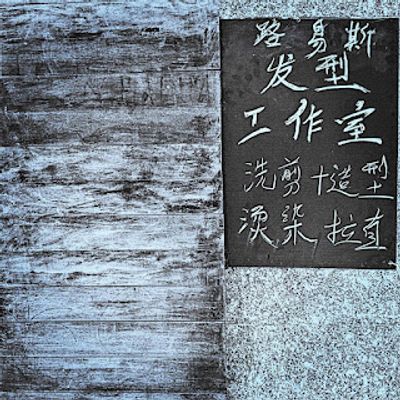 路易斯
发型
工作室
洗剪十造型
烫染拉直